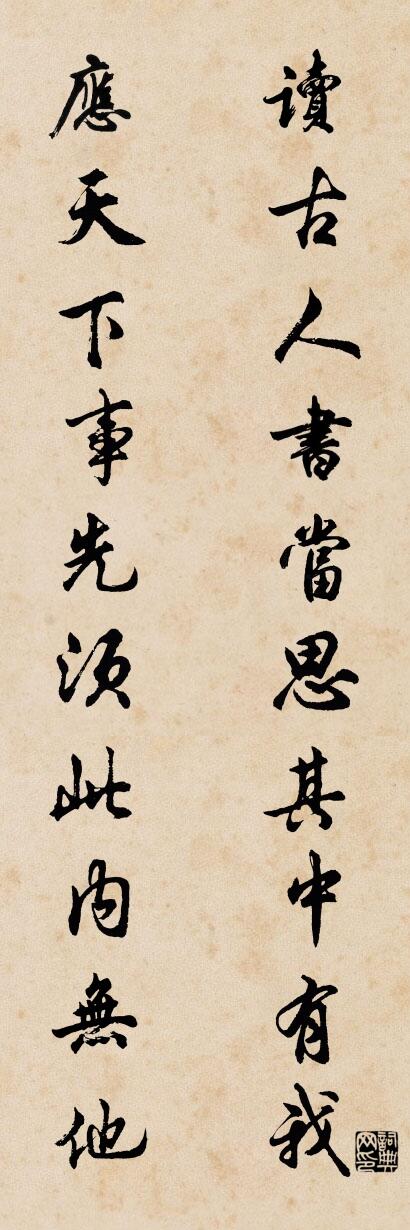 讀古人書當思其中有我
應天下事先須此內無他
詞典网印